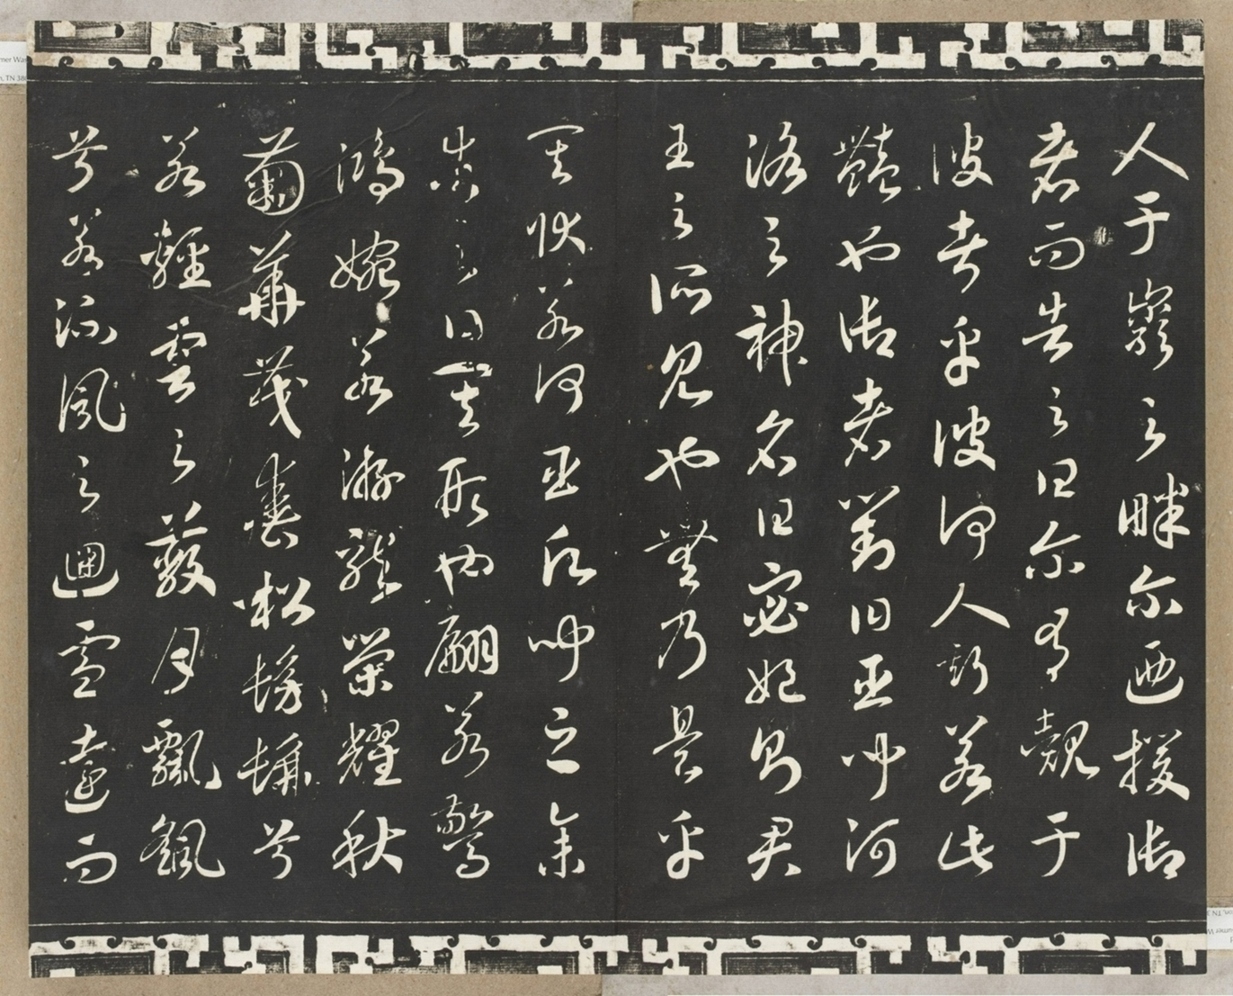 人于巖之畔尔迺援御
者而告之曰尔有覿于
彼者乎彼何人斯若此
豔也御者對曰臣聞河
洛之神名曰宓妃則君
王之所見也無乃是乎
其狀若何臣願聞之余
告之曰其形也翩若驚
鴻婉若游龍榮耀秋
菊華茂春松髣髴兮
若輕雲之蔽月飄颻
兮若流風之迴雪遠而